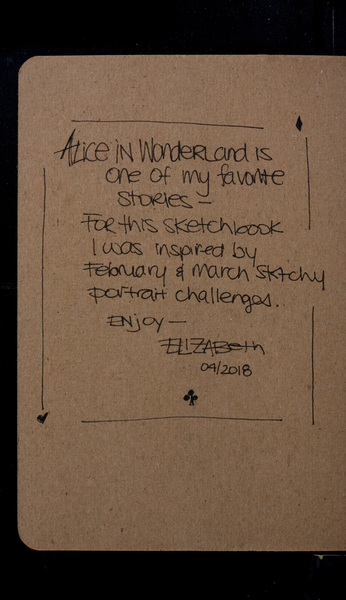 Alice in Wonderland is
one of my favorite
stories –
For this sketchbook
I was inspired by
February & March Sktchy
portrait challenges.
Enjoy –
Elizabeth
04/2018